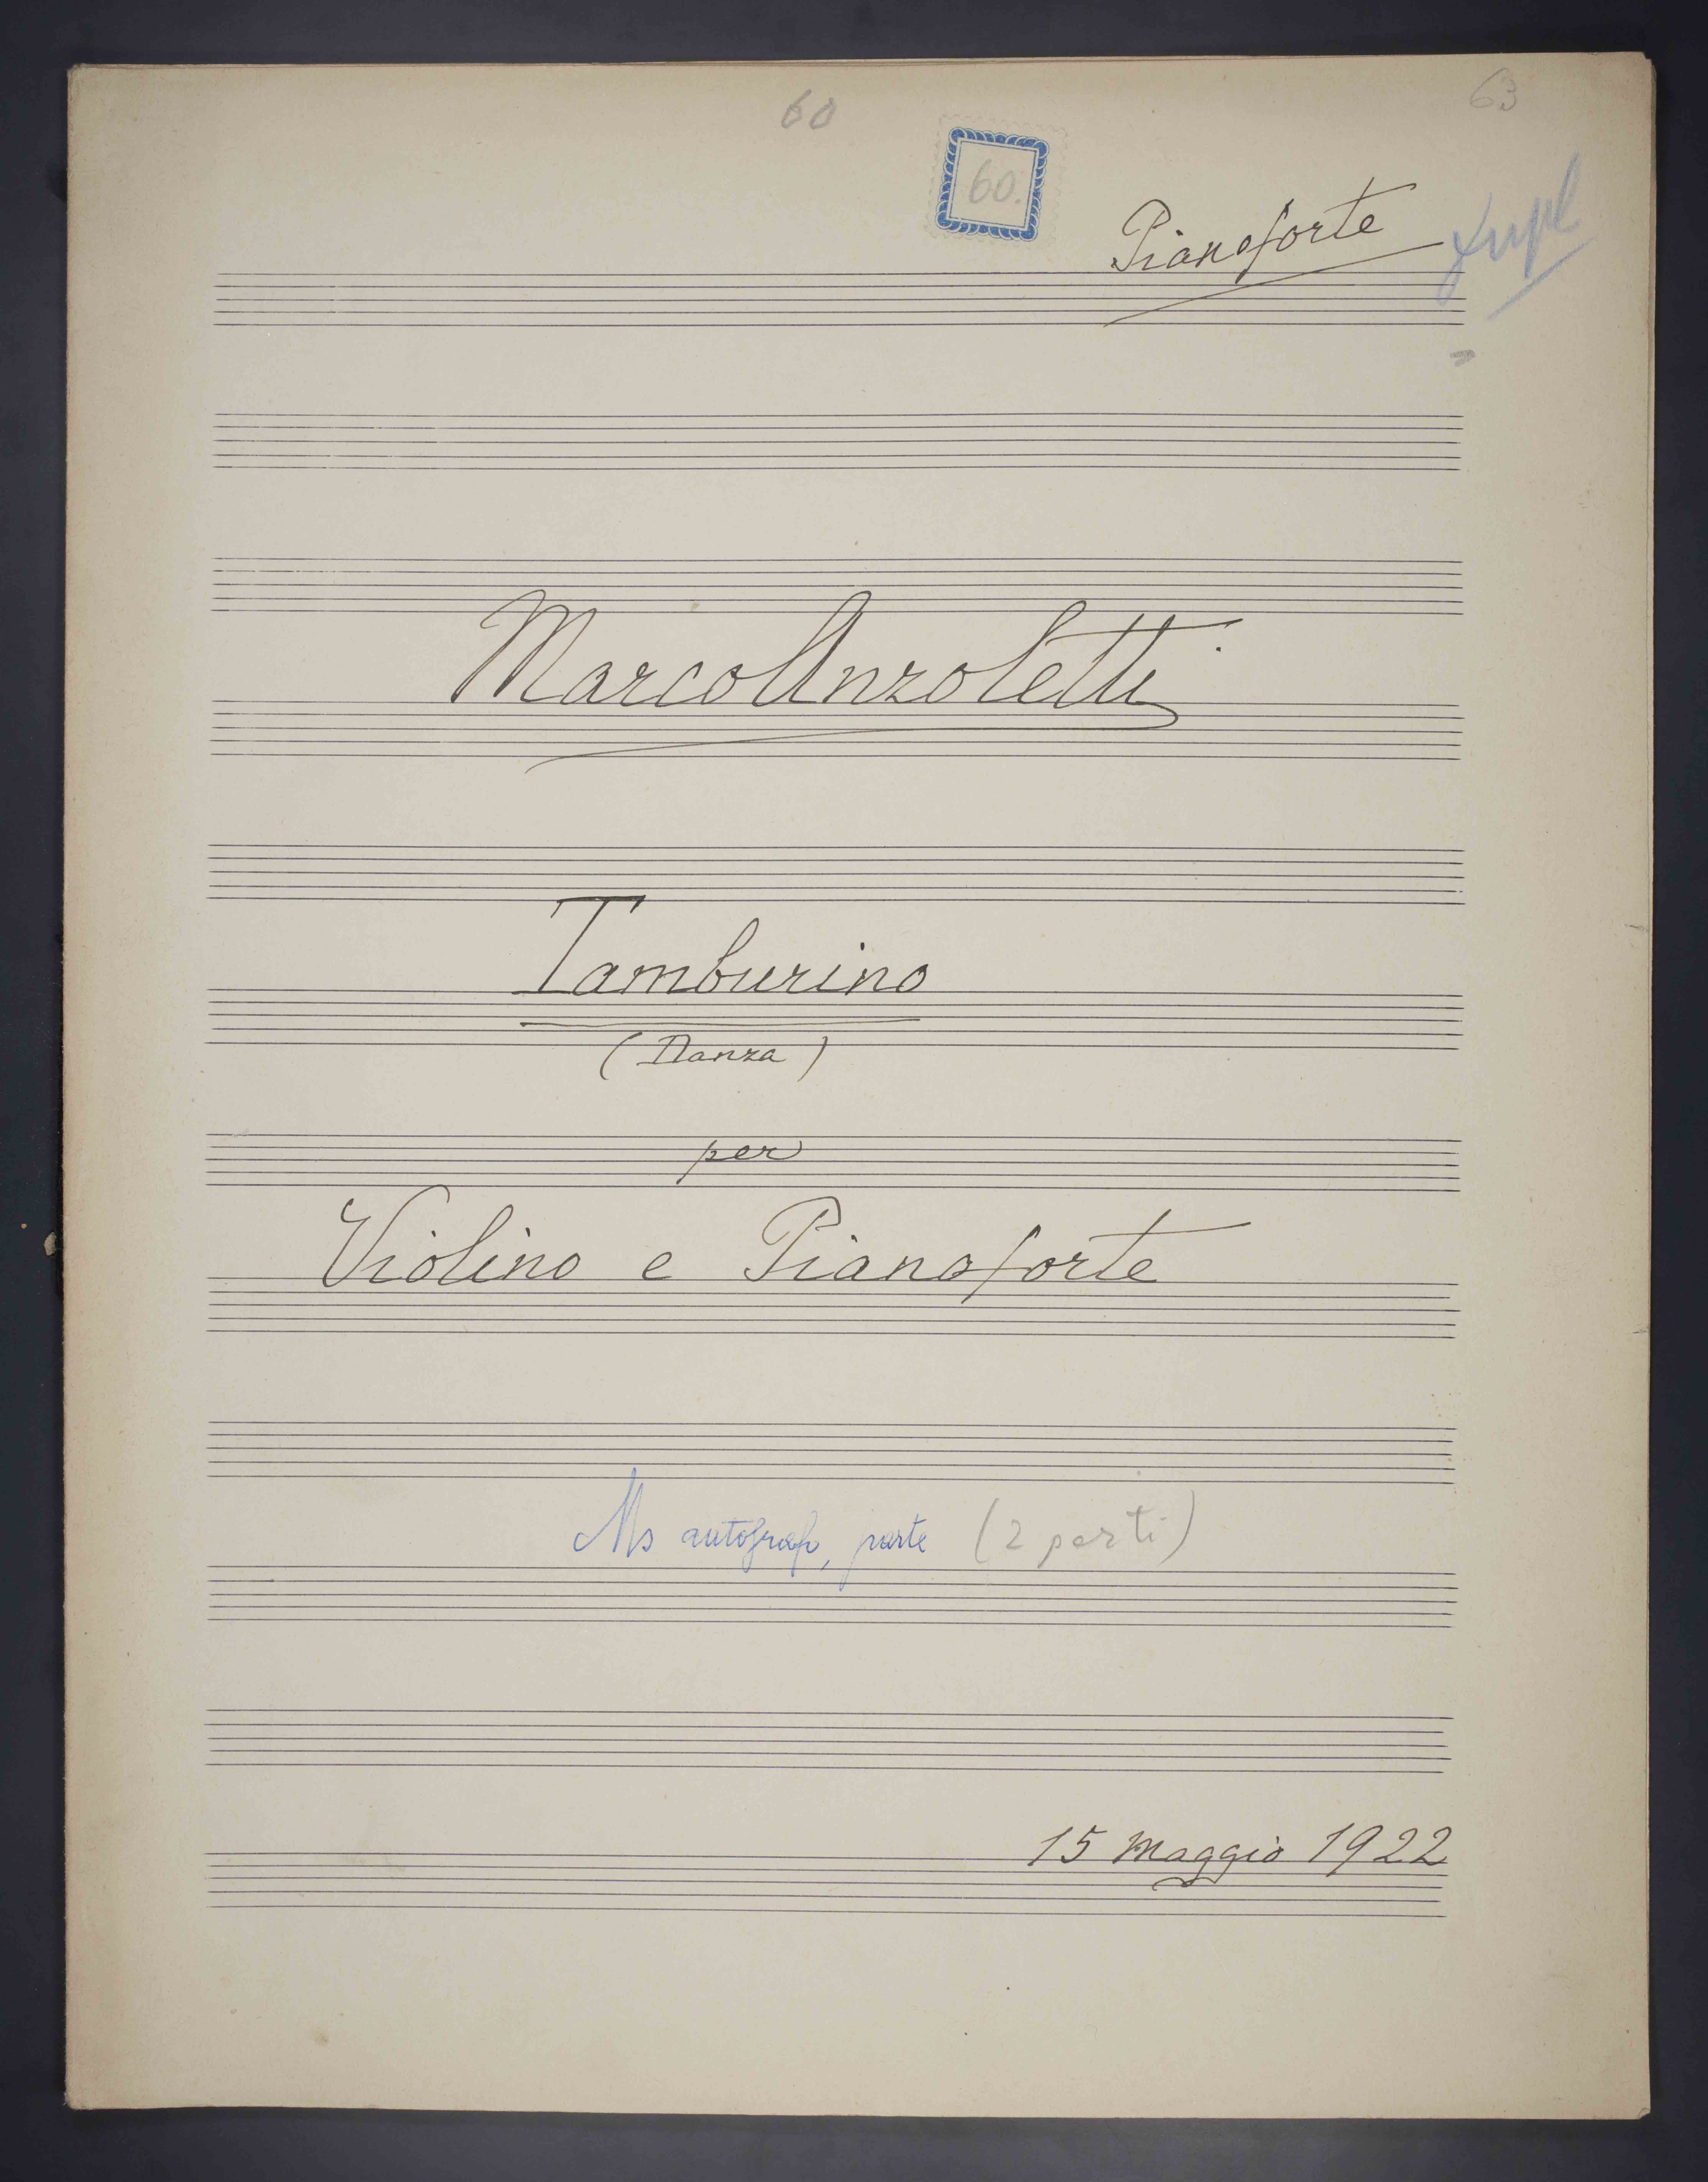 60
63
60.
Pianoforte
dupl
Marco Anzoletti
Tamburino
(Danza)
per
Violino e Pianoforte
Ms autografo, parte (2 parti)
15 Maggio 1922